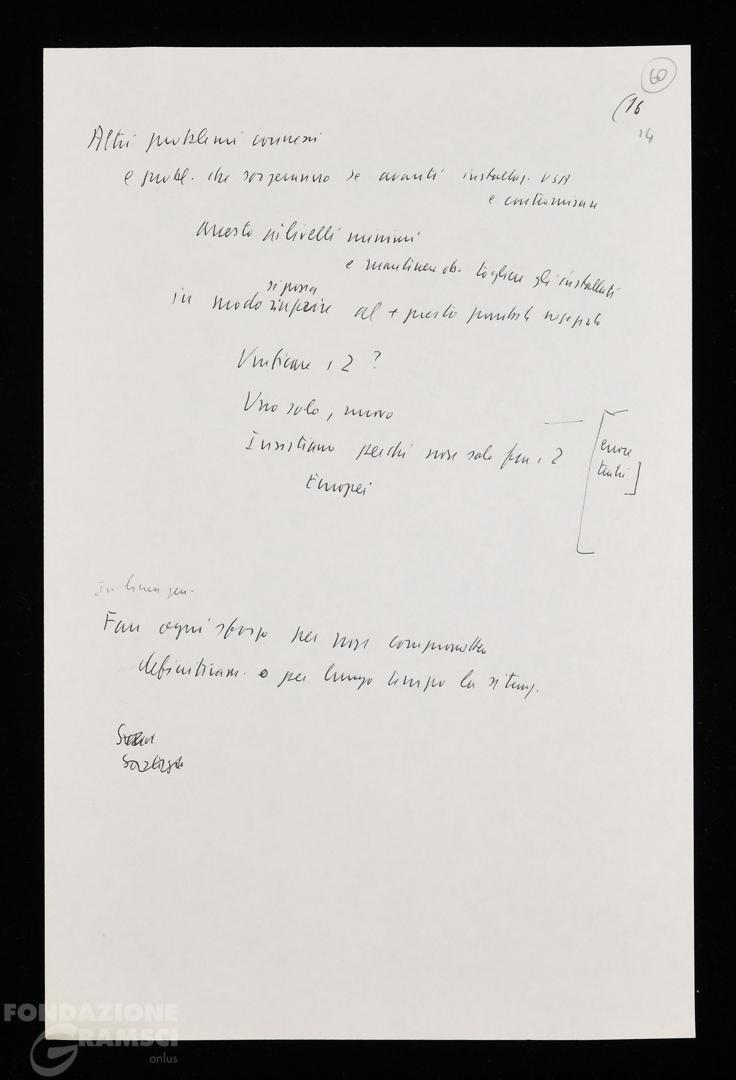 60
(16
14
Altri problemi connessi
e probl. che sorgeranno se avanti installaz. USA
e contromisure
Arresto ai livelli minimi
e mantenere ob. togliere gli installati
si possa
in modo al + presto possibile
Unificare i 2 ?
Uno solo, nuovo
Insistiamo perché non solo fra i 2
Europei
In linea gen.
Fare ogni sforzo per non compromettere
definitivam. o per lungo tempo la situaz.
FONDAZIONE
GRAMSCI
onlus